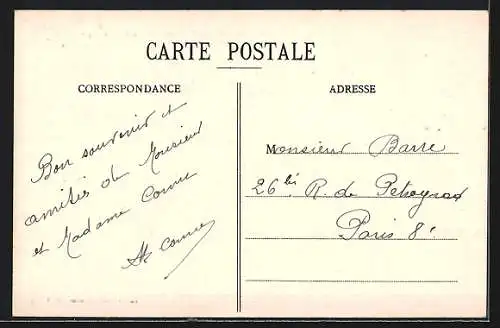 CARTE POSTALE
CORRESPONDANCE
ADRESSE
Bon souvenir et
amitiés de Monsieur
et Madame
Monsieur Barré
26 bis R. de Petrograd
Paris 8e